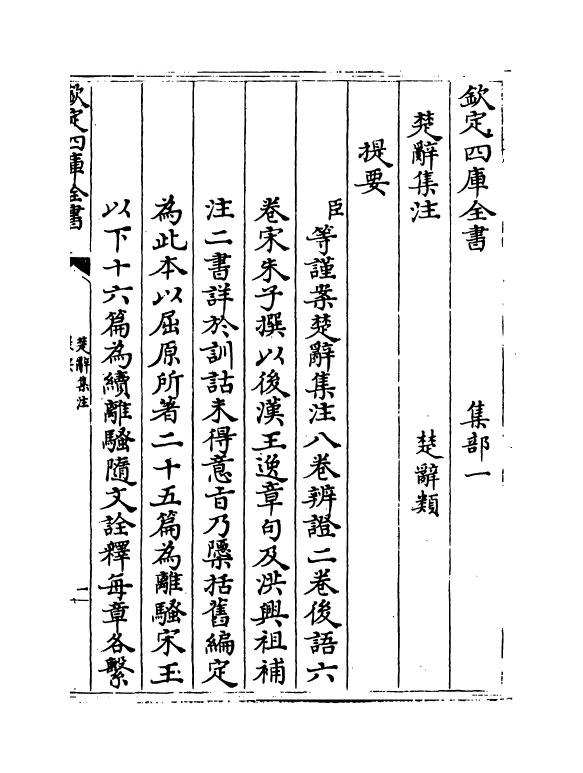 欽定四庫全書 集部一
楚辭集注 楚辭類
提要
臣等謹案楚辭集注八卷辨證二卷後語六
卷宋朱子撰以後漢王逸章句及洪興祖補
注二書詳於訓詁未得意旨乃檃括舊編定
為此本以屈原所著二十五篇為離騷宋玉
以下十六篇為續離騷隨文詮釋每章各繫
欽定四庫全書
楚辭集注